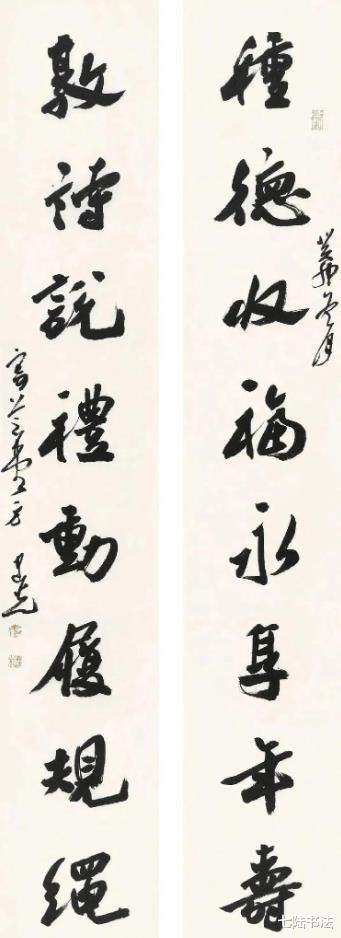 種德收福永享年壽
敦詩說禮動履規繩
七陆书法